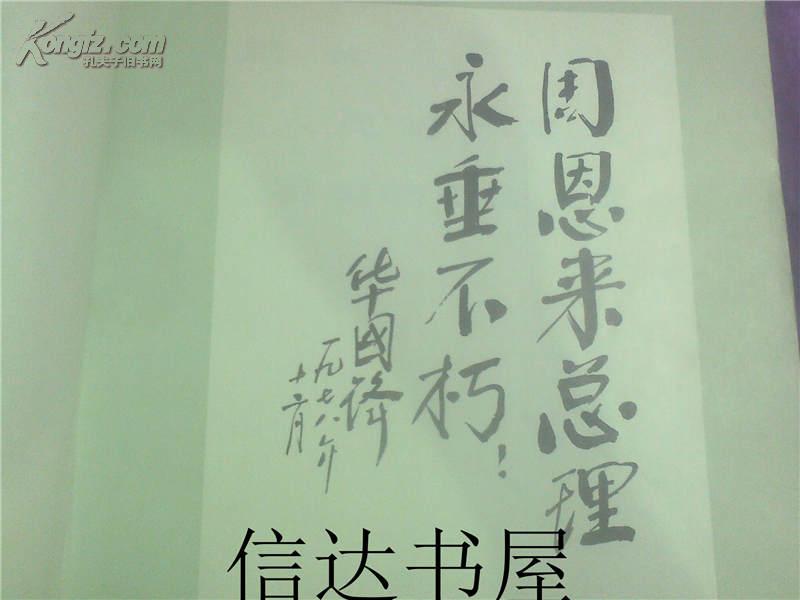 Kongfz.com
孔夫子旧书网
周恩来总理
永垂不朽！
华國锋
一九七八年
十二月
信达书屋